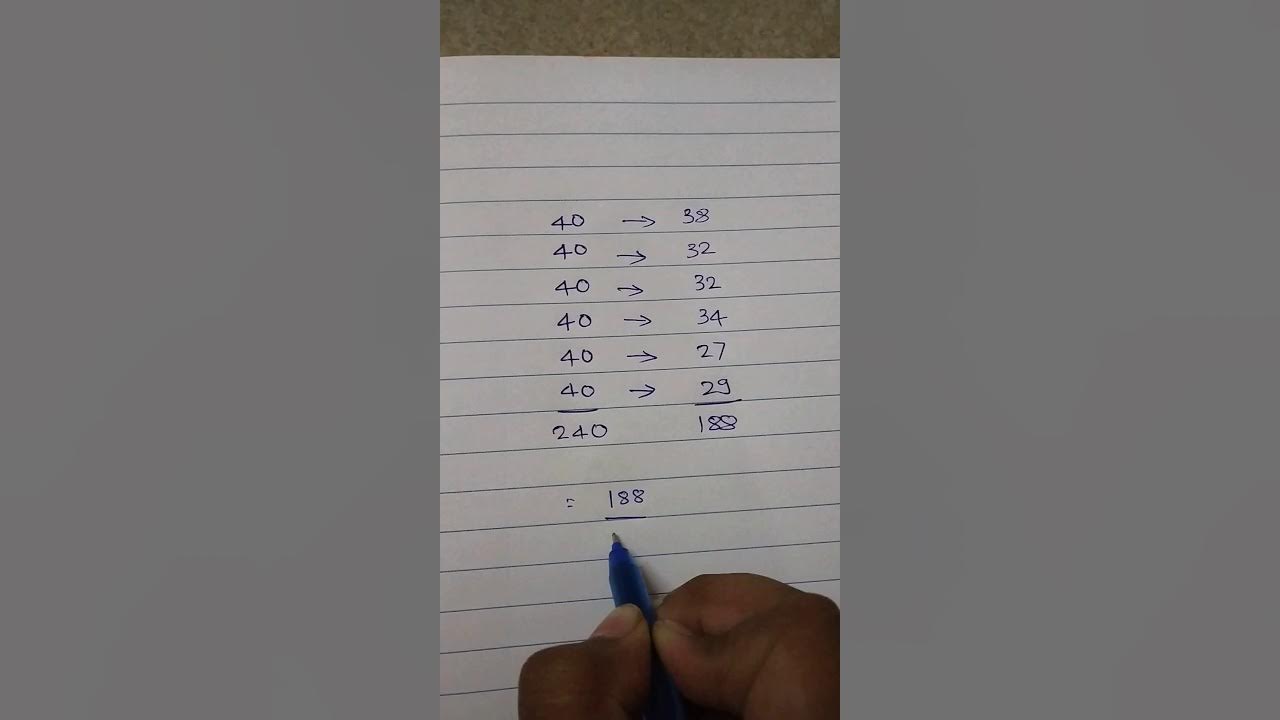 40 → 38
40 → 32
40 → 32
40 → 34
40 → 27
40 → 29
240 188
= 188